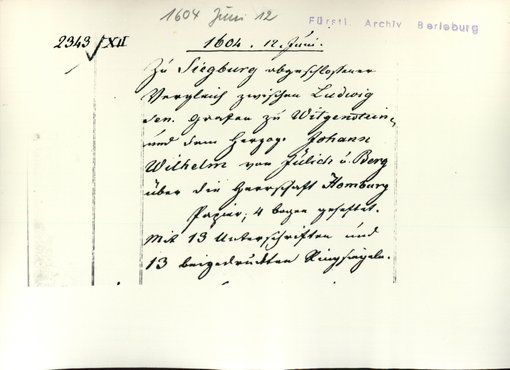 1604 Juni 12
Fürstl. Archiv Berleburg
2343/XII
1604. 12. Juni.
Zu Siegburg abgeschlossener
Vergleich zwischen Ludwig
den. Grafen zu Witgenstein,
und dem Herzog Johann
Wilhelm von Jülich u. Berg
über die Herrschaft Homburg
Papier, 4 bogen geheftet.
Mit 13 Unterschriften und
13 beigedruckten Ringsiegeln.